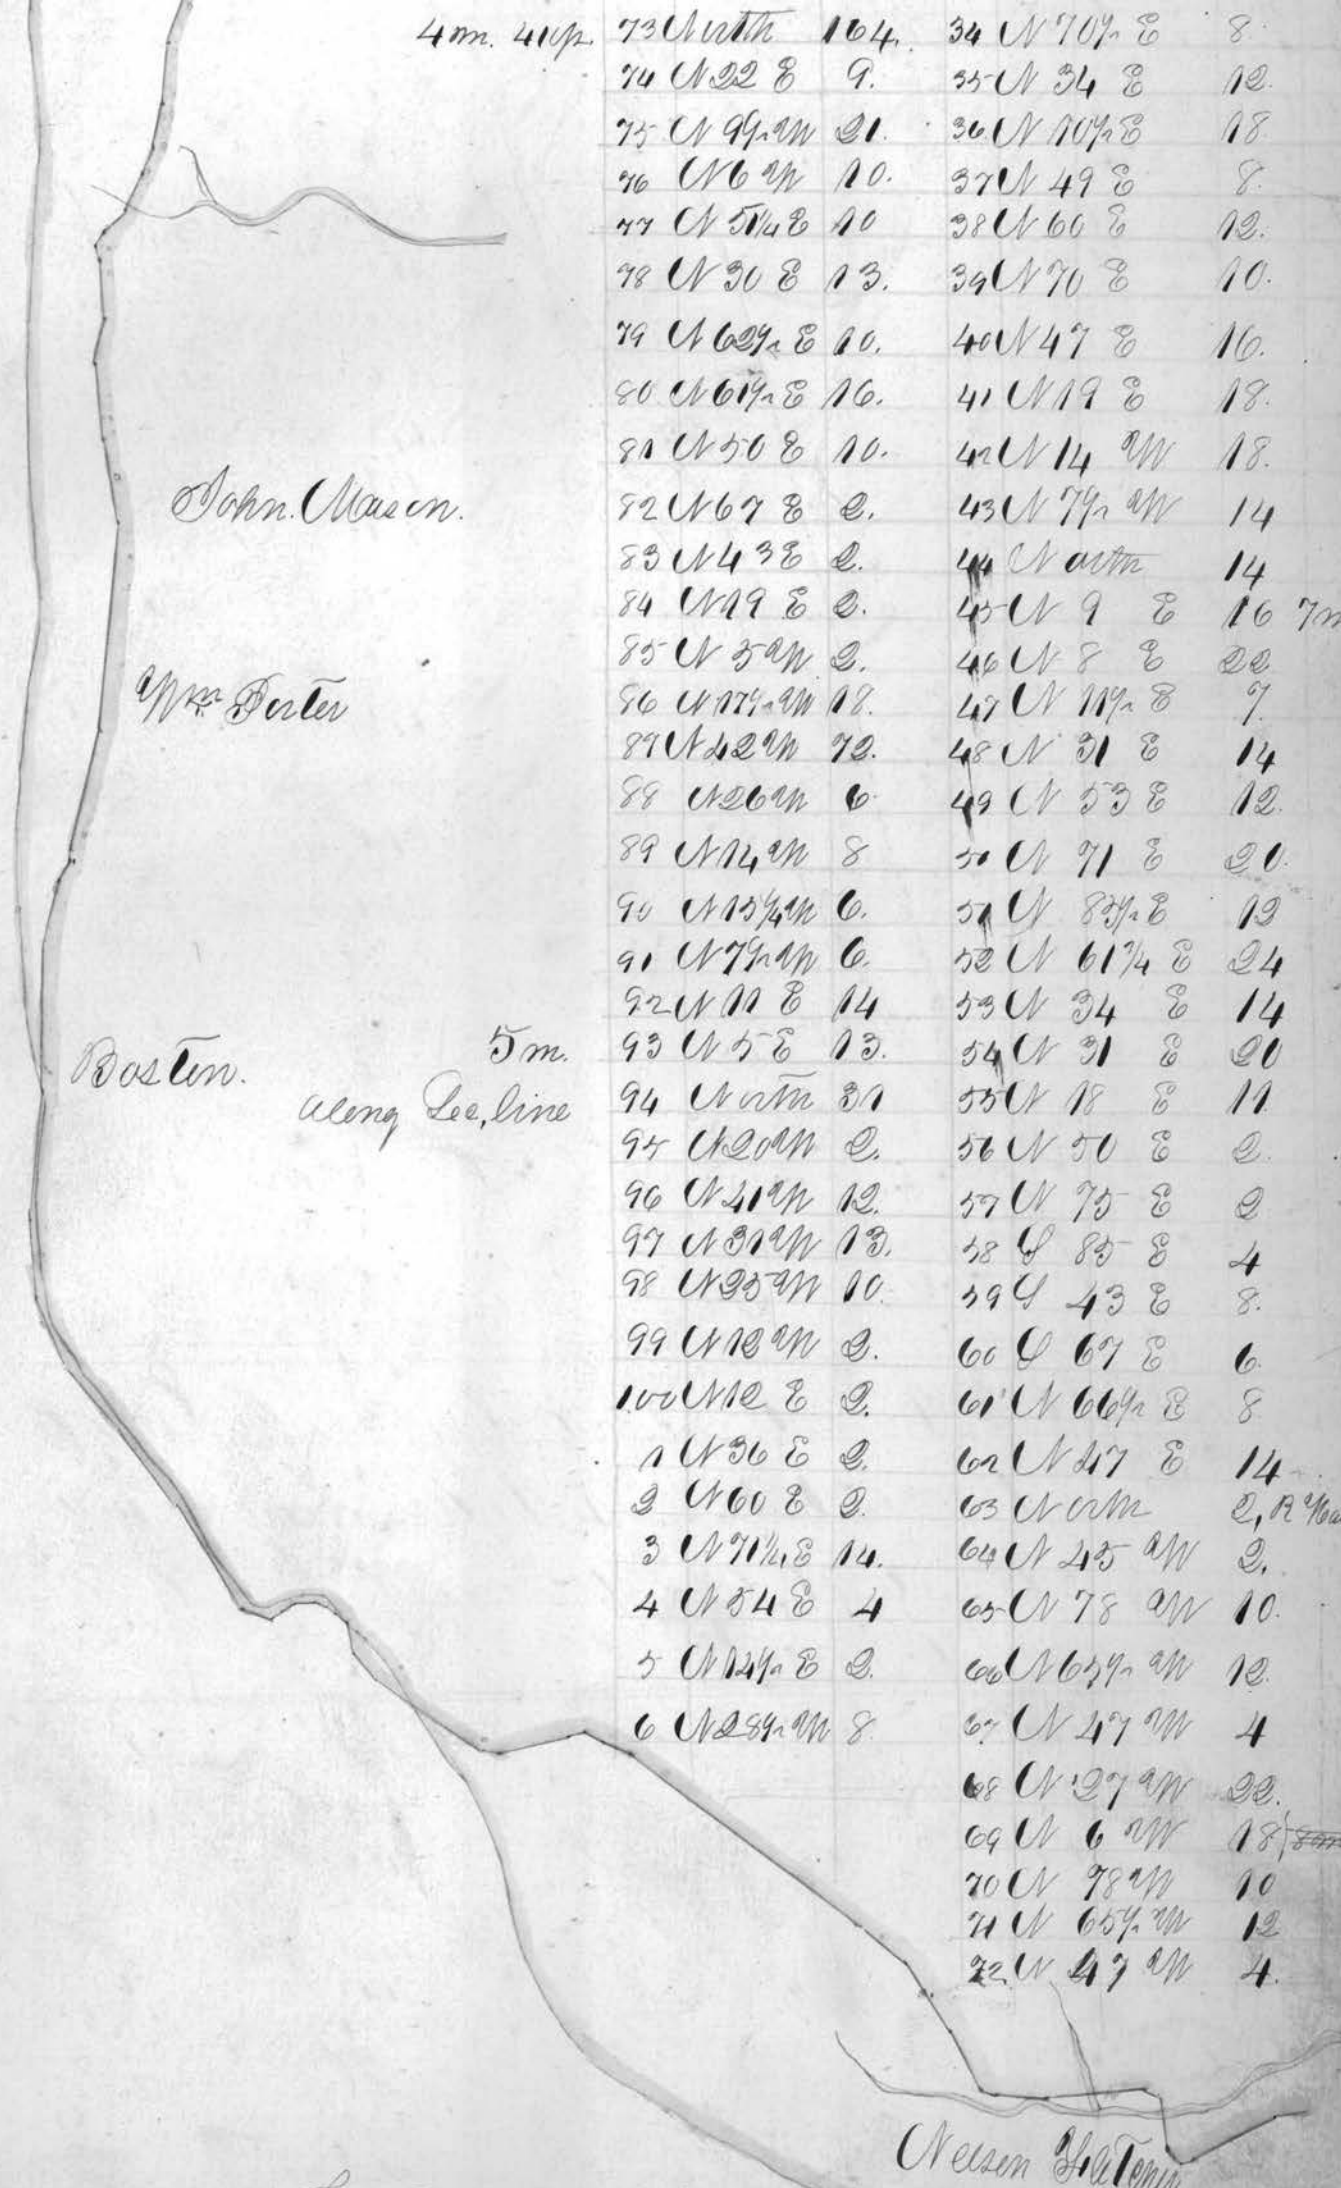 4m. 41p. 73 North 164.
74 N 22 E 9.
75 N 9½ W 21.
76 N 6 W 10.
77 N 51¼ E 10
78 N 30 E 13.
79 N 62½ E 10.
80 N 61½ E 16.
81 N 50 E 10.
82 N 67 E 2.
83 N 43 E 2.
84 N 19 E 2.
85 N 5 W 2.
86 N 17½ W 18.
87 N 42 W 72.
88 N 26 W 6.
89 N 14 W 8
90 N 15¼ W 6.
91 N 7½ W 6.
92 N 11 E 14
5m. 93 N 5 E 13.
along Sec, line 94 North 31
95 N 20 W 2.
96 N 41 W 12.
97 N 31 W 13.
98 N 25 W 10.
99 N 12 W 2.
100 N 12 E 2.
1 N 36 E 2.
2 N 60 E 2.
3 N 71½ E 14.
4 N 54 E 4
5 N 14½ E 2.
6 N 28½ W 8.
34 N 70½ E 8.
35 N 34 E 12.
36 N 10½ E 18.
37 N 49 E 8.
38 N 60 E 12.
39 N 70 E 10.
40 N 47 E 16.
41 N 19 E 18.
42 N 14 W 18.
43 N 7½ W 14
44 North 14
45 N 9 E 16 7m
46 N 8 E 22
47 N 11½ E 7.
48 N 31 E 14
49 N 53 E 12.
50 N 71 E 20.
51 N 83½ E 12
52 N 61¾ E 24
53 N 34 E 14
54 N 31 E 20
55 N 18 E 11
56 N 50 E 2.
57 N 75 E 2
58 S 85 E 4
59 S 43 E 8.
60 S 67 E 6.
61 N 66½ E 8
62 N 47 E 14
63 North 2, R
64 N 45 W 2.
65 N 78 W 10.
66 N 65½ W 12.
67 N 47 W 4
68 N 27 W 22.
69 N 6 W 18 8m
70 N 78 W 10
71 N 65½ W 12
72 N 47 W 4.
John. Mason.
Wm Porter
Boston.
Nelson